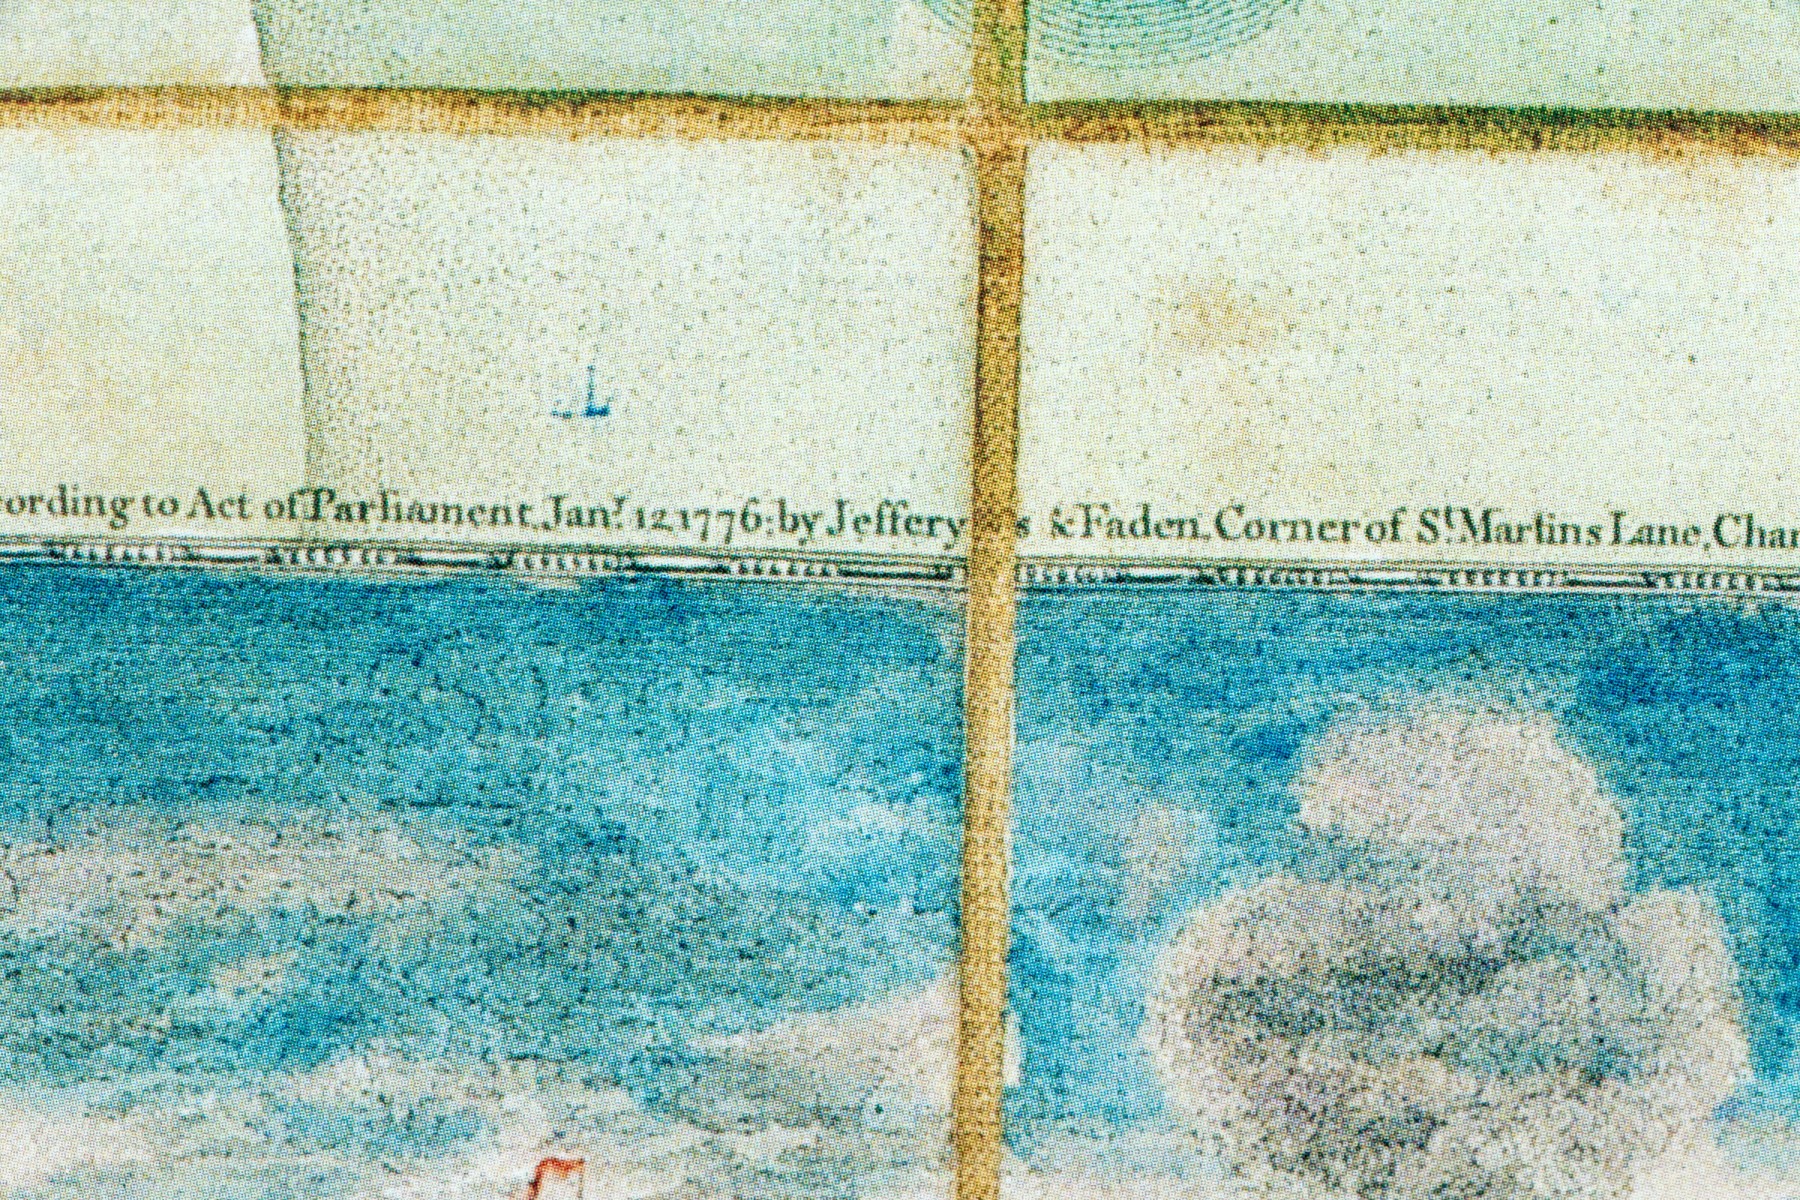 cording to Act of Parliament, Janʸ. 12. 1776; by Jefferys & Faden, Corner of Sᵗ. Martins Lane, Char